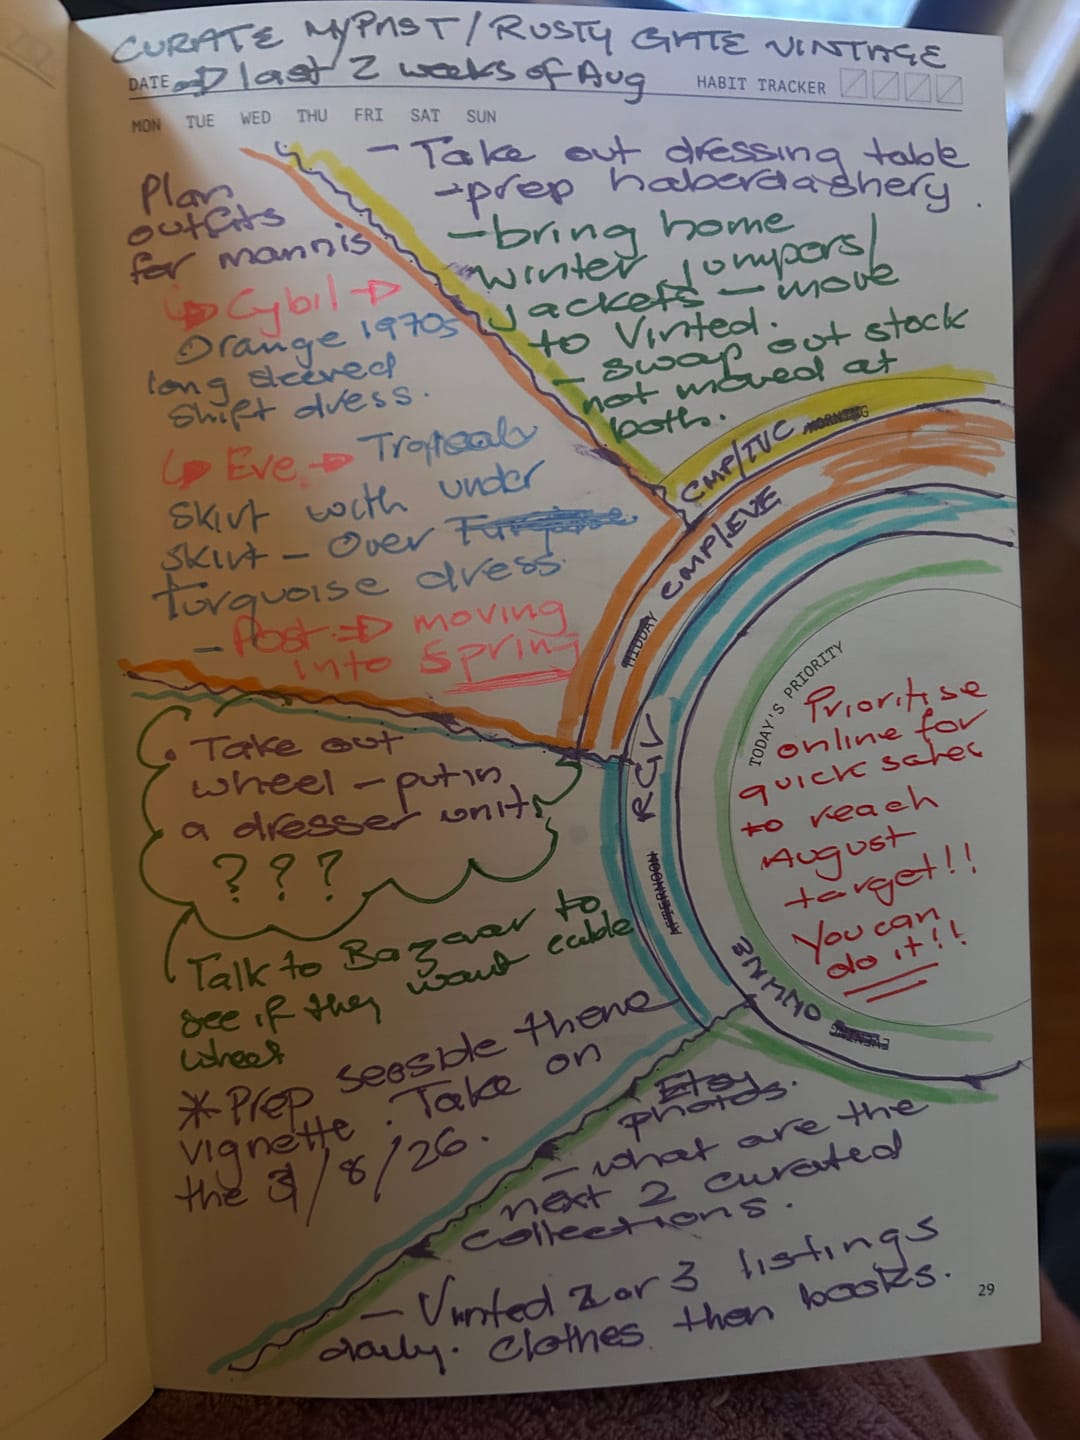 CURATE MYPAST / RUSTY GATE VINTAGE
DATE → last 2 weeks of Aug
HABIT TRACKER
MON TUE WED THU FRI SAT SUN
- Take out dressing table
→ prep haberdashery.
- bring home
winter jumpors/
jackets - move
to Vinted.
- swap out stock
not moved at
both.
CMP/IVC MORNING
Plan
outfits
for mannis
↳ Cybil →
Orange 1970s
long sleeved
shift dress.
↳ Eve → Tropical
skirt with under
skirt - Over
turquoise dress.
- Post → moving
into Spring
CMP/EVE
MIDDAY
. Take out
wheel - put in
a dresser unit,
? ? ?
Talk to Bazaar to
see if they want cable
wheel
* Prep seasible theme
vignette. Take on
the 3/8/26.
RGV
AFTERNOON
TODAY'S PRIORITY
Prioritise
online for
quick sales
to reach
August
target!!
You can
do it!!
ONLINE EVENING
Etsy
photos.
- what are the
next 2 curated
collections.
- Vinted 2 or 3 listings
daily. Clothes then books.
29